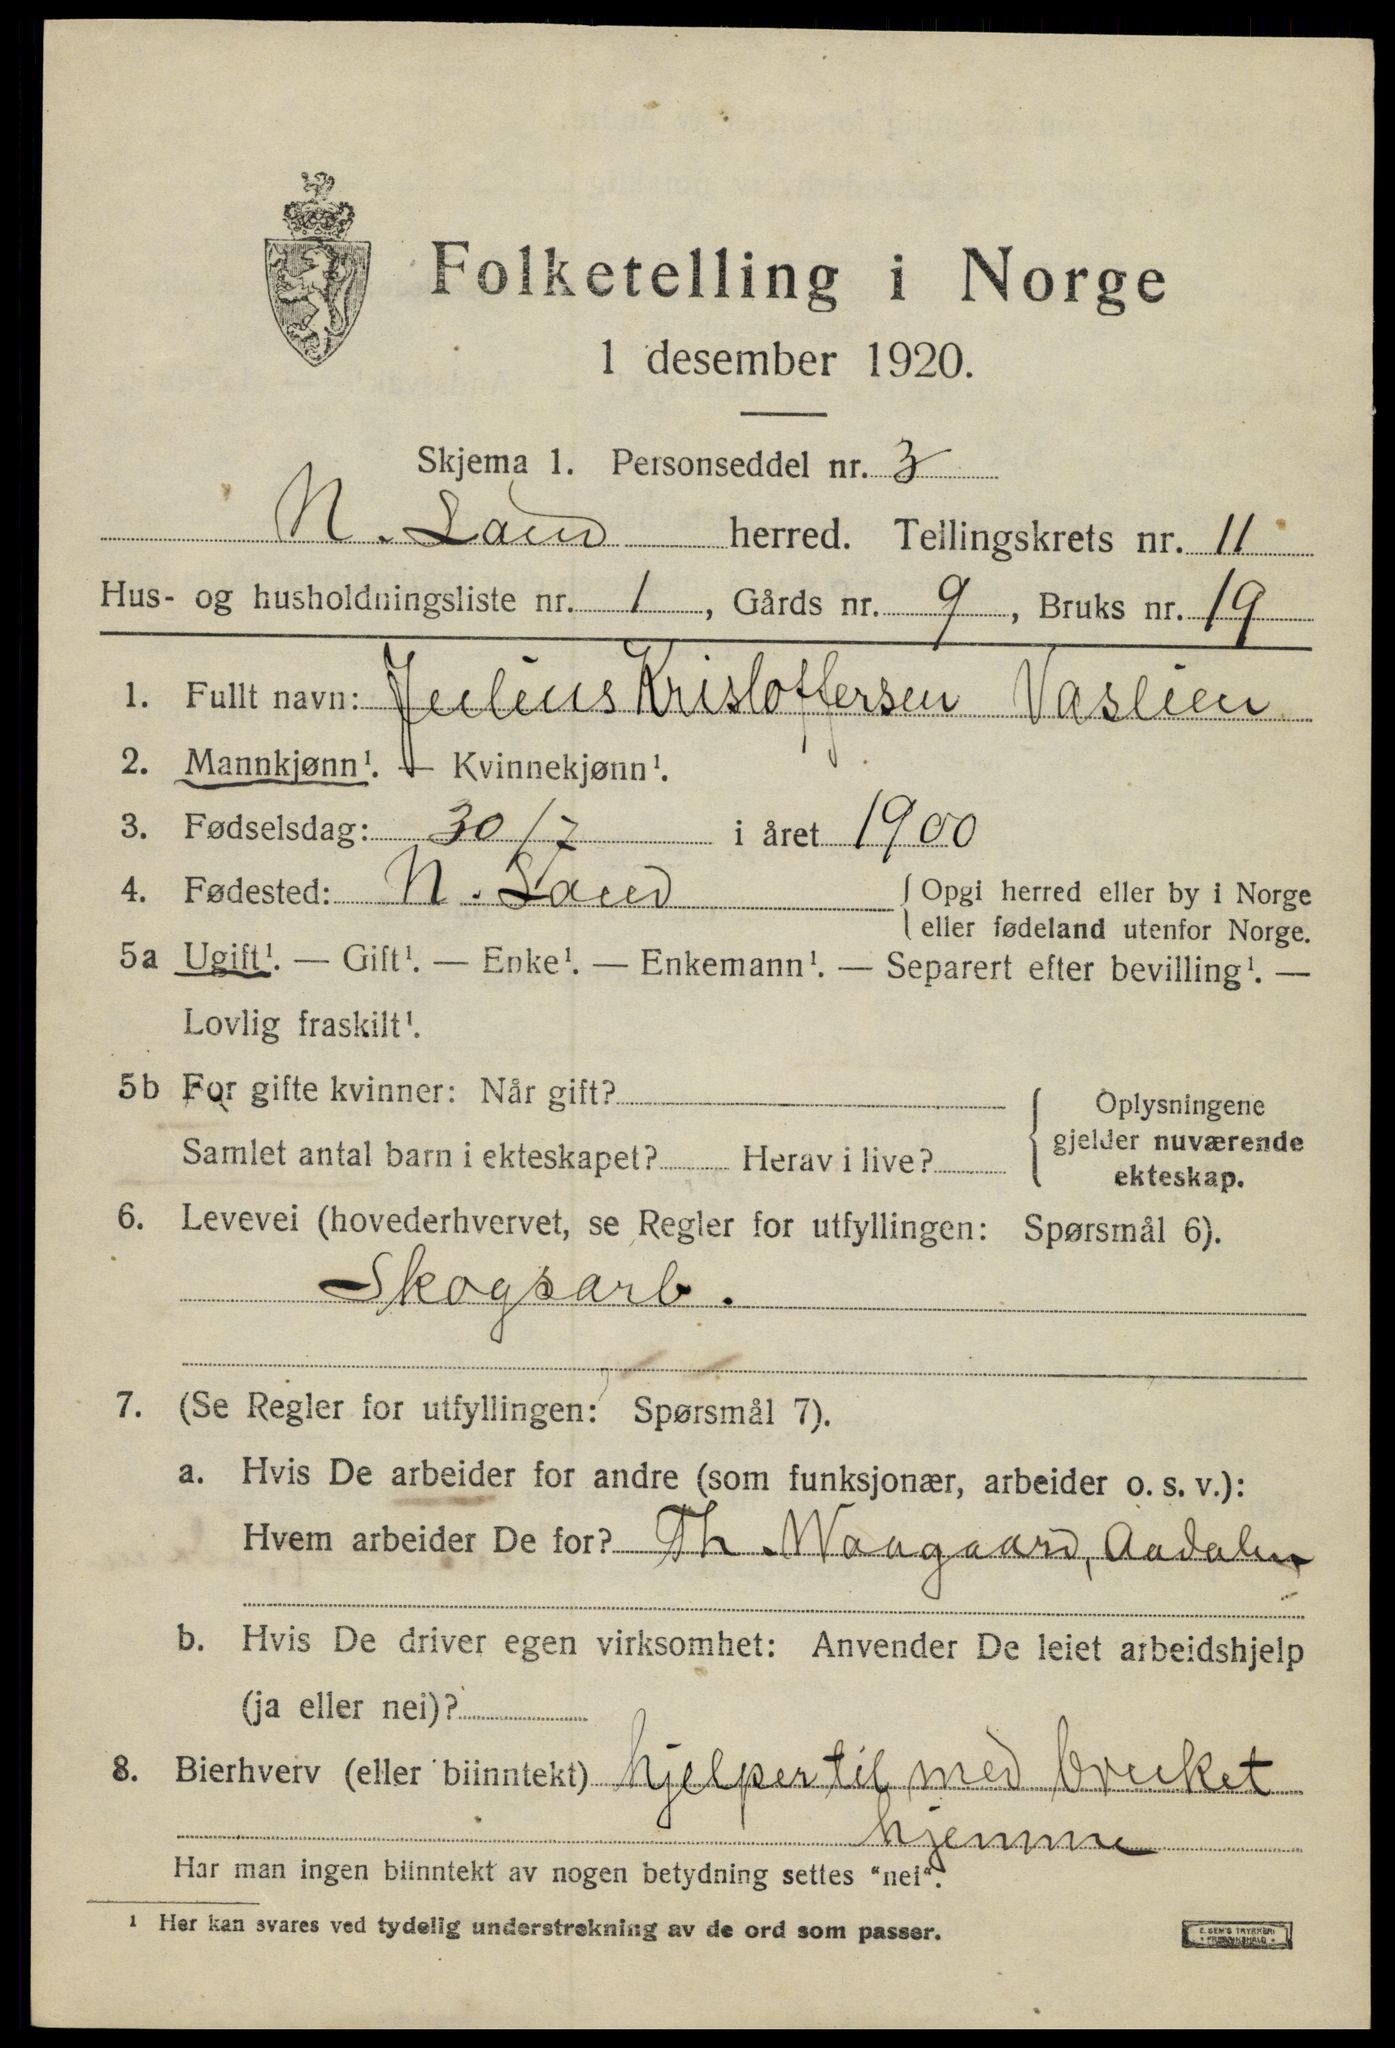 Folketelling i Norge
1 desember 1920.
Skjema 1. Personseddel nr. 3
N. Land herred. Tellingskrets nr. 11
Hus- og husholdningsliste nr. 1, Gårds nr. 9, Bruks nr. 19
1. Fullt navn: Julius Kristoffersen Vaslien
2. Mannkjønn¹. — Kvinnekjønn¹.
3. Fødselsdag: 30/7 i året 1900
4. Fødested: N. Land { Opgi herred eller by i Norge
eller fødeland utenfor Norge.
5a Ugift¹. — Gift¹. — Enke¹. — Enkemann¹. — Separert efter bevilling¹. —
Lovlig fraskilt¹.
5b For gifte kvinner: Når gift?
Samlet antal barn i ekteskapet? Herav i live?
{ Oplysningene
gjelder nuværende
ekteskap.
6. Levevei (hovederhvervet, se Regler for utfyllingen: Spørsmål 6).
Skogsarb.
7. (Se Regler for utfyllingen: Spørsmål 7).
a. Hvis De arbeider for andre (som funksjonær, arbeider o. s. v.):
Hvem arbeider De for? Th. Waagaard, Aadalen
b. Hvis De driver egen virksomhet: Anvender De leiet arbeidshjelp
(ja eller nei)?
8. Bierhverv (eller biinntekt) hjelper til med bruket
hjemme
Har man ingen biinntekt av nogen betydning settes "nei".
¹ Her kan svares ved tydelig understrekning av de ord som passer.